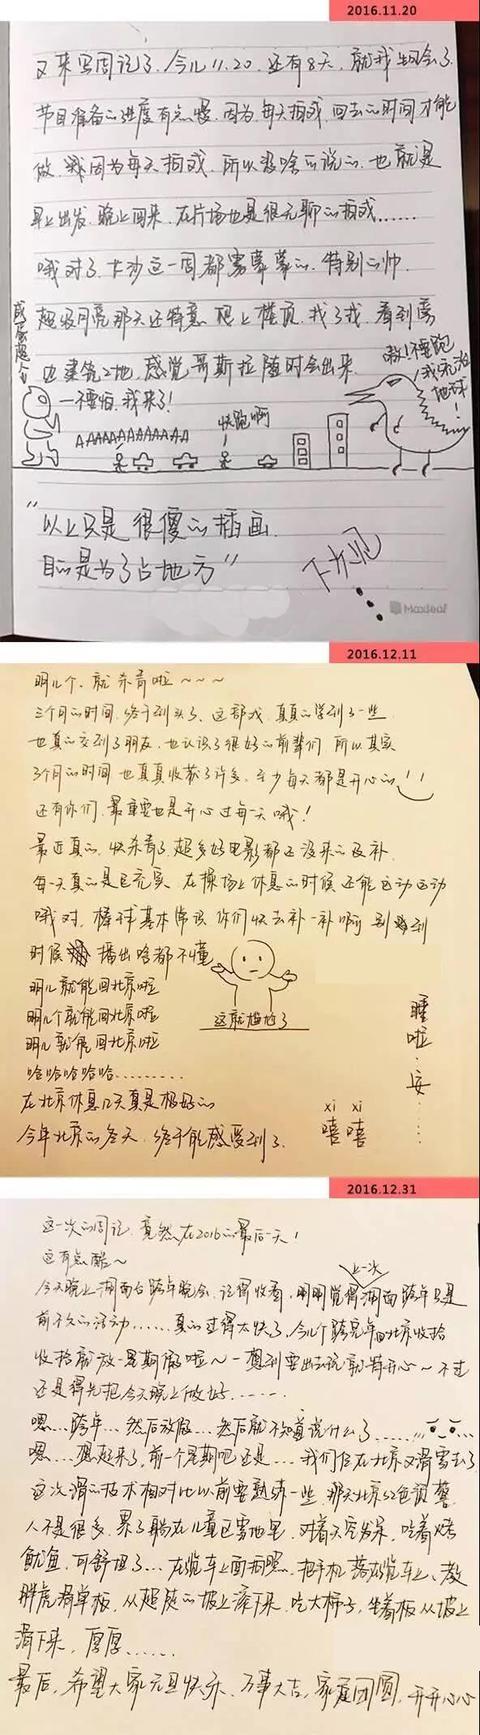 2016.11.20
又来写周记了.今儿11.20.还有8天.就我生日会了.
节目准备的进度有点慢.因为每天拍戏.回去的时间才能
做.我因为每天拍戏.所以没啥可说的.也就是
早上出发.晚上回来.在片场也是很无聊的拍戏……
哦对了.长沙这一周都雾蒙蒙的.特别的帅.
超级月亮那天还特意爬上楼顶.找了找.看到旁
边建筑工地.感觉哥斯拉随时会出来.
咸蛋超人
一不要怕.我来了!
嗷!不要跑
我来治
地球!
AAAAAAAAAAAAA
快跑啊
"以上只是很傻的插画.
目的是为了占地方"
下次见
Maxleaf
2016.12.11
明儿个.就杀青啦~~~
三个月的时间.终于到头了.这部戏.真真的学到了一些.
也真的交到了朋友.也认识了很好的前辈们.所以其实
3个月的时间也真真收获了许多.至少每天都是开心的!!
还有你们.最重要也是开心过每一天哦!
最近真的.快杀青了.超多好电影都还没来的及补.
每一天真的是巨充实.在操场上休息的时候还能运动运动
哦对.棒球基本常识你们快去补一补啊.别到
时候播出啥都不懂
这就尴尬了
明儿就能回北京啦
明儿个就能回北京啦
明儿就能回北京啦
哈哈哈哈哈………
在北京休息几天真是极好的
今年北京的冬天.终于能感受到了.
xi xi
嘻嘻
睡啦.安……
2016.12.31
这一次的周记.竟然在2016的最后一天!
这有点酷~
上一次
今天晚上湖南台跨年晚会.记得收看.明明觉得湖南跨年只是
前不久的活动……真的过得太快了.今儿个跨完年回北京收拾
收拾就放一星期假啦~一想到要出去玩就特开心~不过
还是得先把今天晚上做好……
嗯…跨年…然后放假…然后就不知道说什么了……
嗯…想起来了.前一个星期吧还是…我们仨在北京又滑雪去了
这次滑的技术相对比以前要熟练一些.那天北京红色预警
人不是很多.累了躺在儿童区雪地里.对着天空发呆.吃着烤
鱿鱼.可舒坦了…在缆车上面拍照.把手机落在缆车上.教
胖虎滑单板.从超陡的坡上滚下来.吃大柿子.坐着板从坡上
滑下来.厚厚……
最后.希望大家元旦快乐.万事大吉.家庭团圆.开开心心